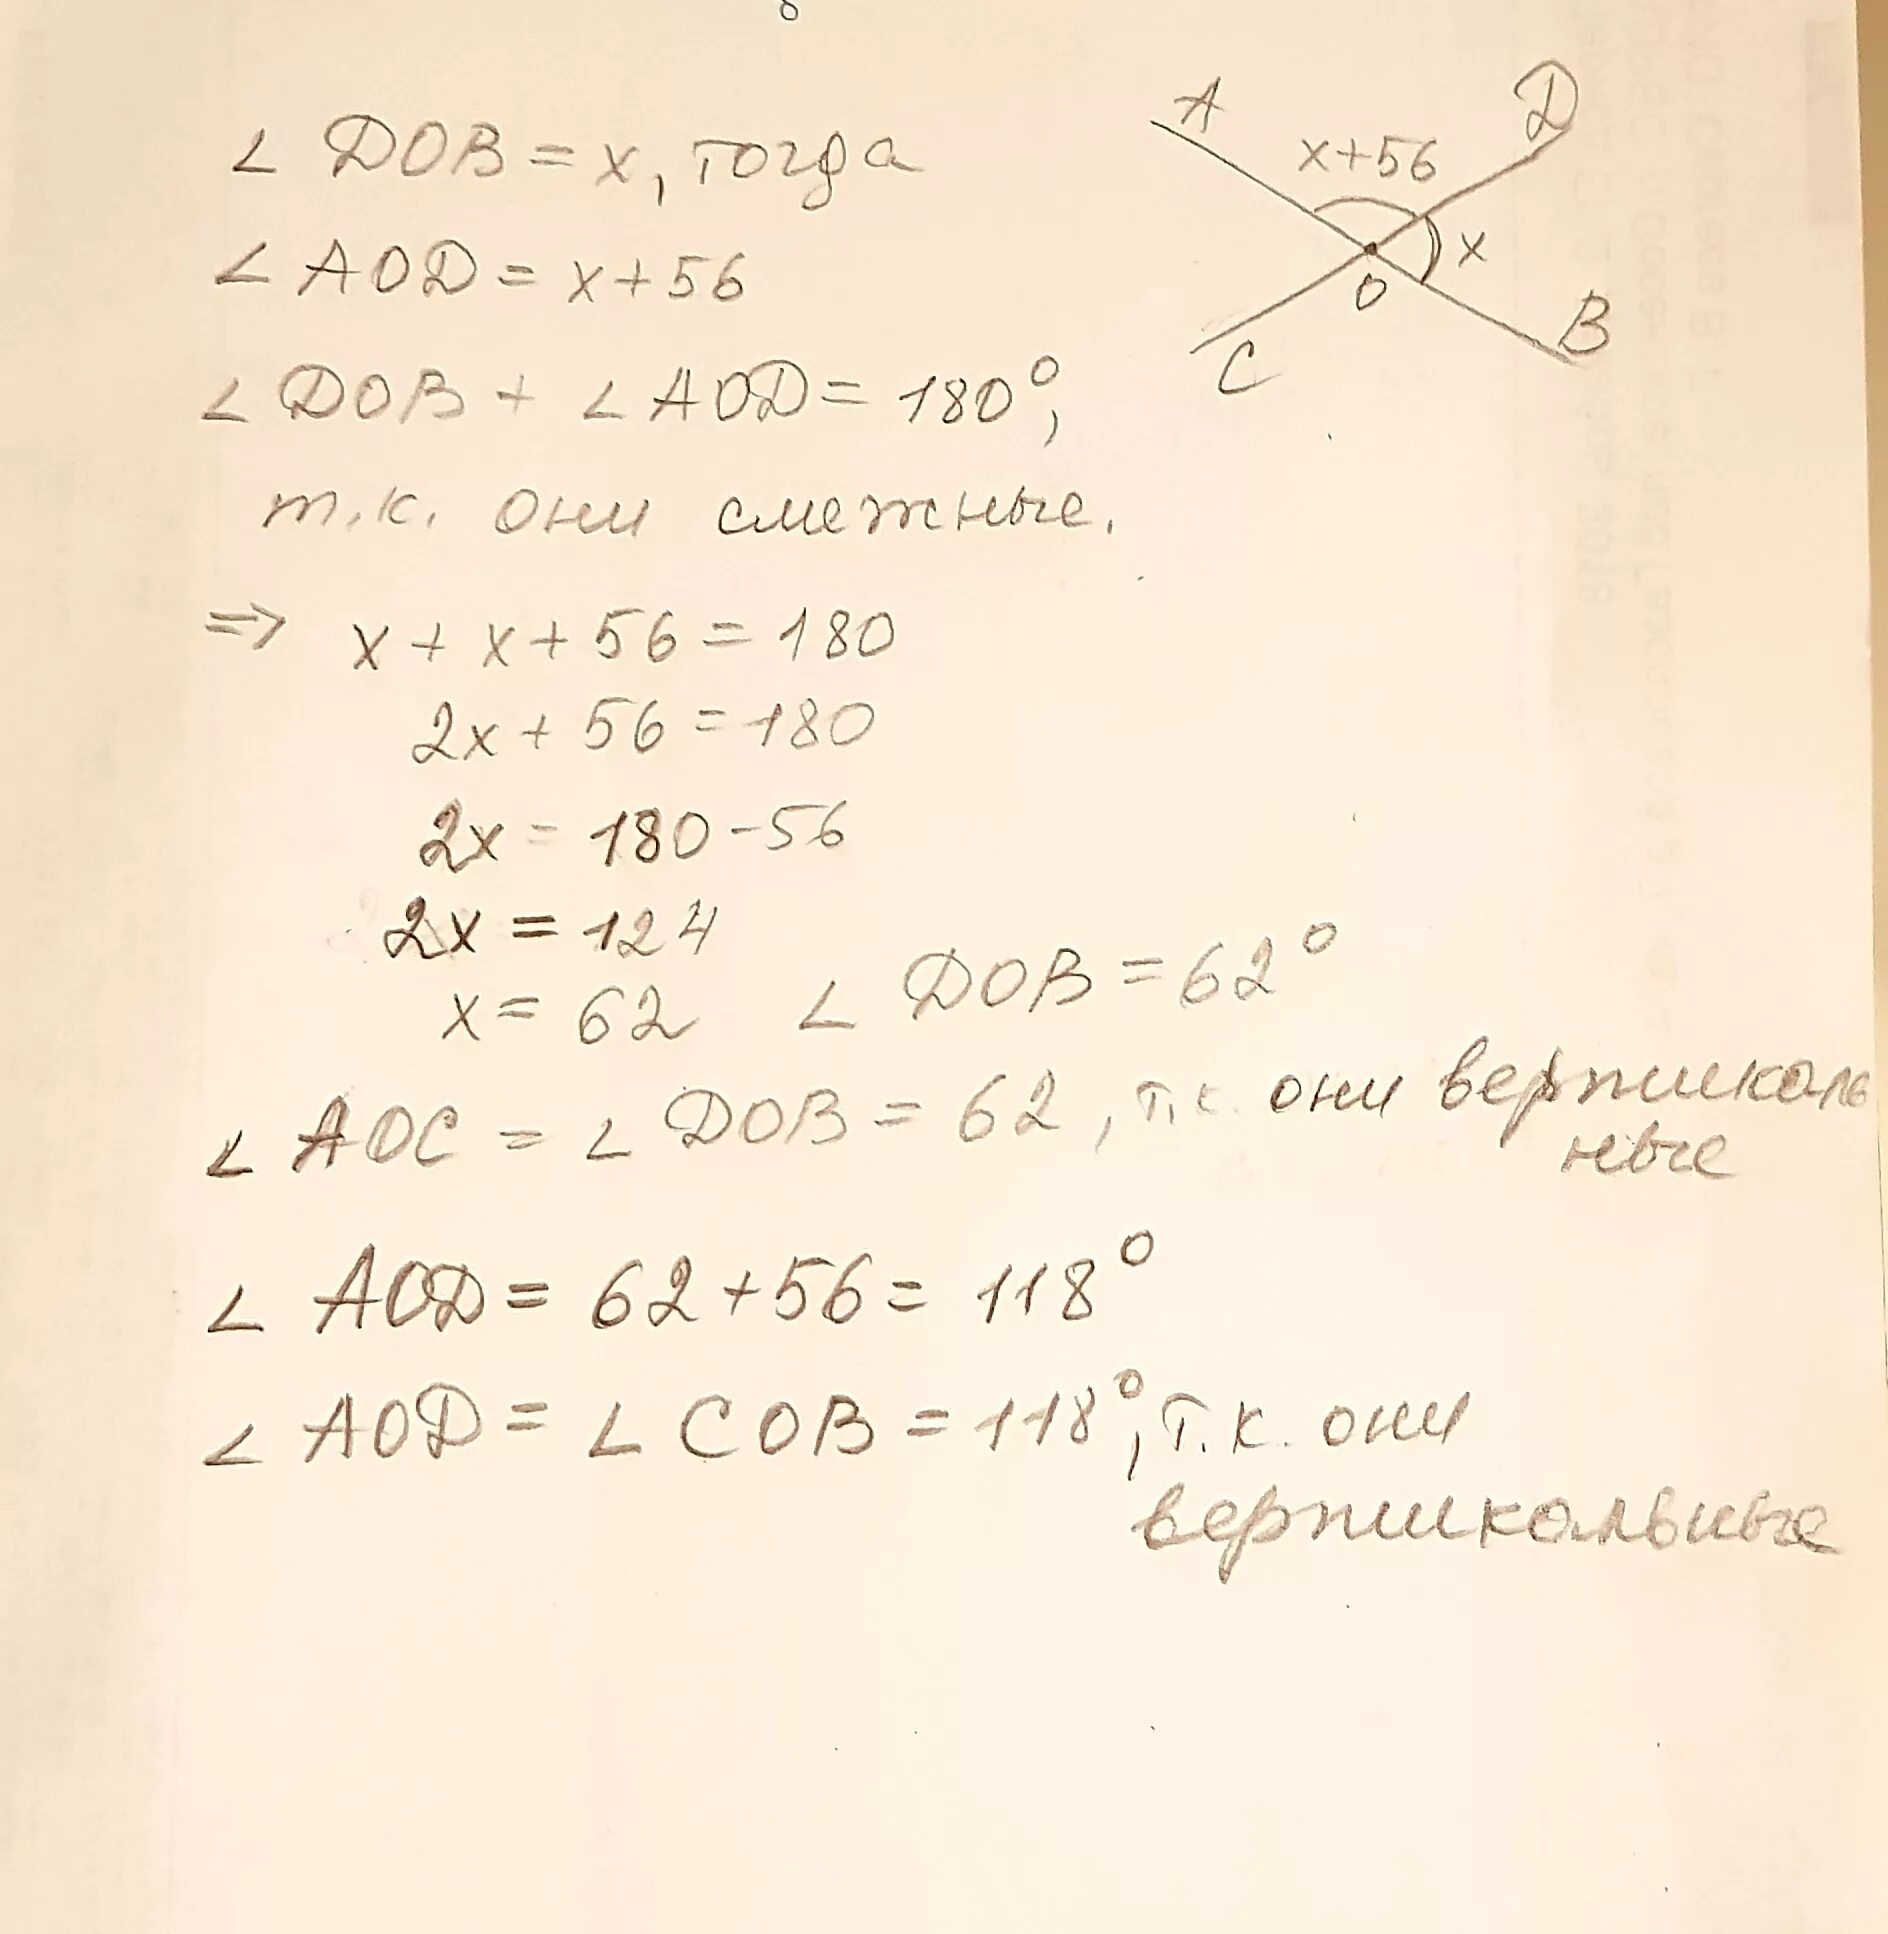 ∠ DOB = x, тогда
∠ AOD = x+56
∠ DOB + ∠ AOD = 180°,
т.к. они смежные.
=> x + x + 56 = 180
2x + 56 = 180
2x = 180 - 56
2x = 124
x = 62 ∠ DOB = 62°
∠ AOC = ∠ DOB = 62, т.к. они вертикаль
ные
∠ AOD = 62 + 56 = 118°
∠ AOD = ∠ COB = 118°, т.к. они
вертикальные
A
D
x+56
x
O
B
C